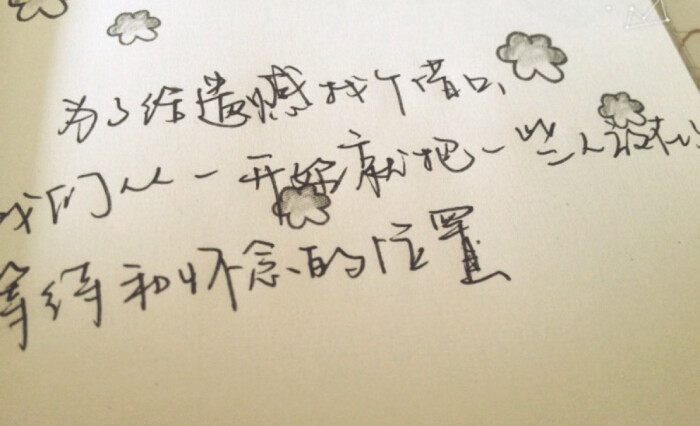 为了给遗憾找个借口
我们从一开始就把一些人放在
等待和怀念的位置